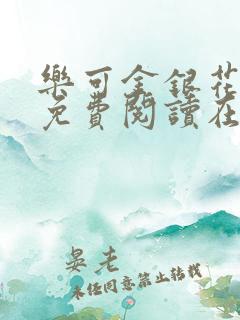 樂可金銀花
免費閱讀在
晏老
未任同意禁止转载